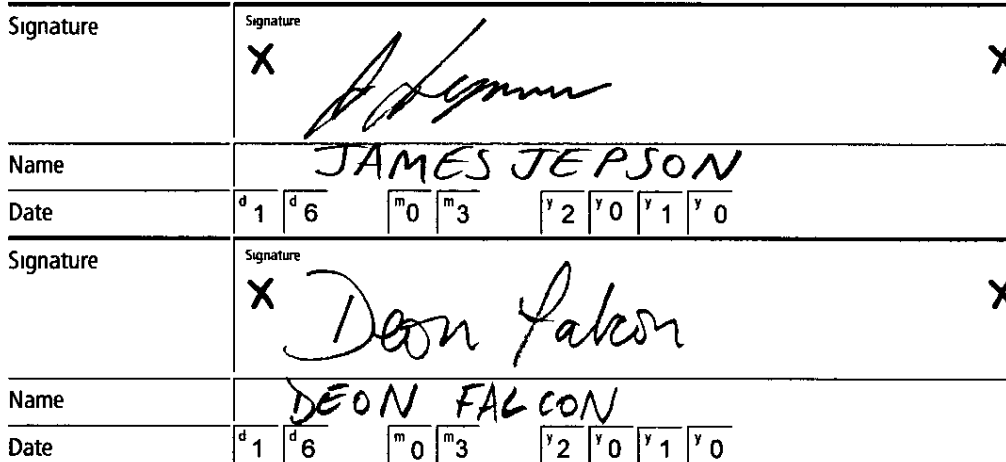 Signature Signature
X X
J Jepson
Name JAMES JEPSON
Date d 1 d 6 m 0 m 3 y 2 y 0 y 1 y 0
Signature Signature
X Deon Falcon X
Name DEON FALCON
Date d 1 d 6 m 0 m 3 y 2 y 0 y 1 y 0